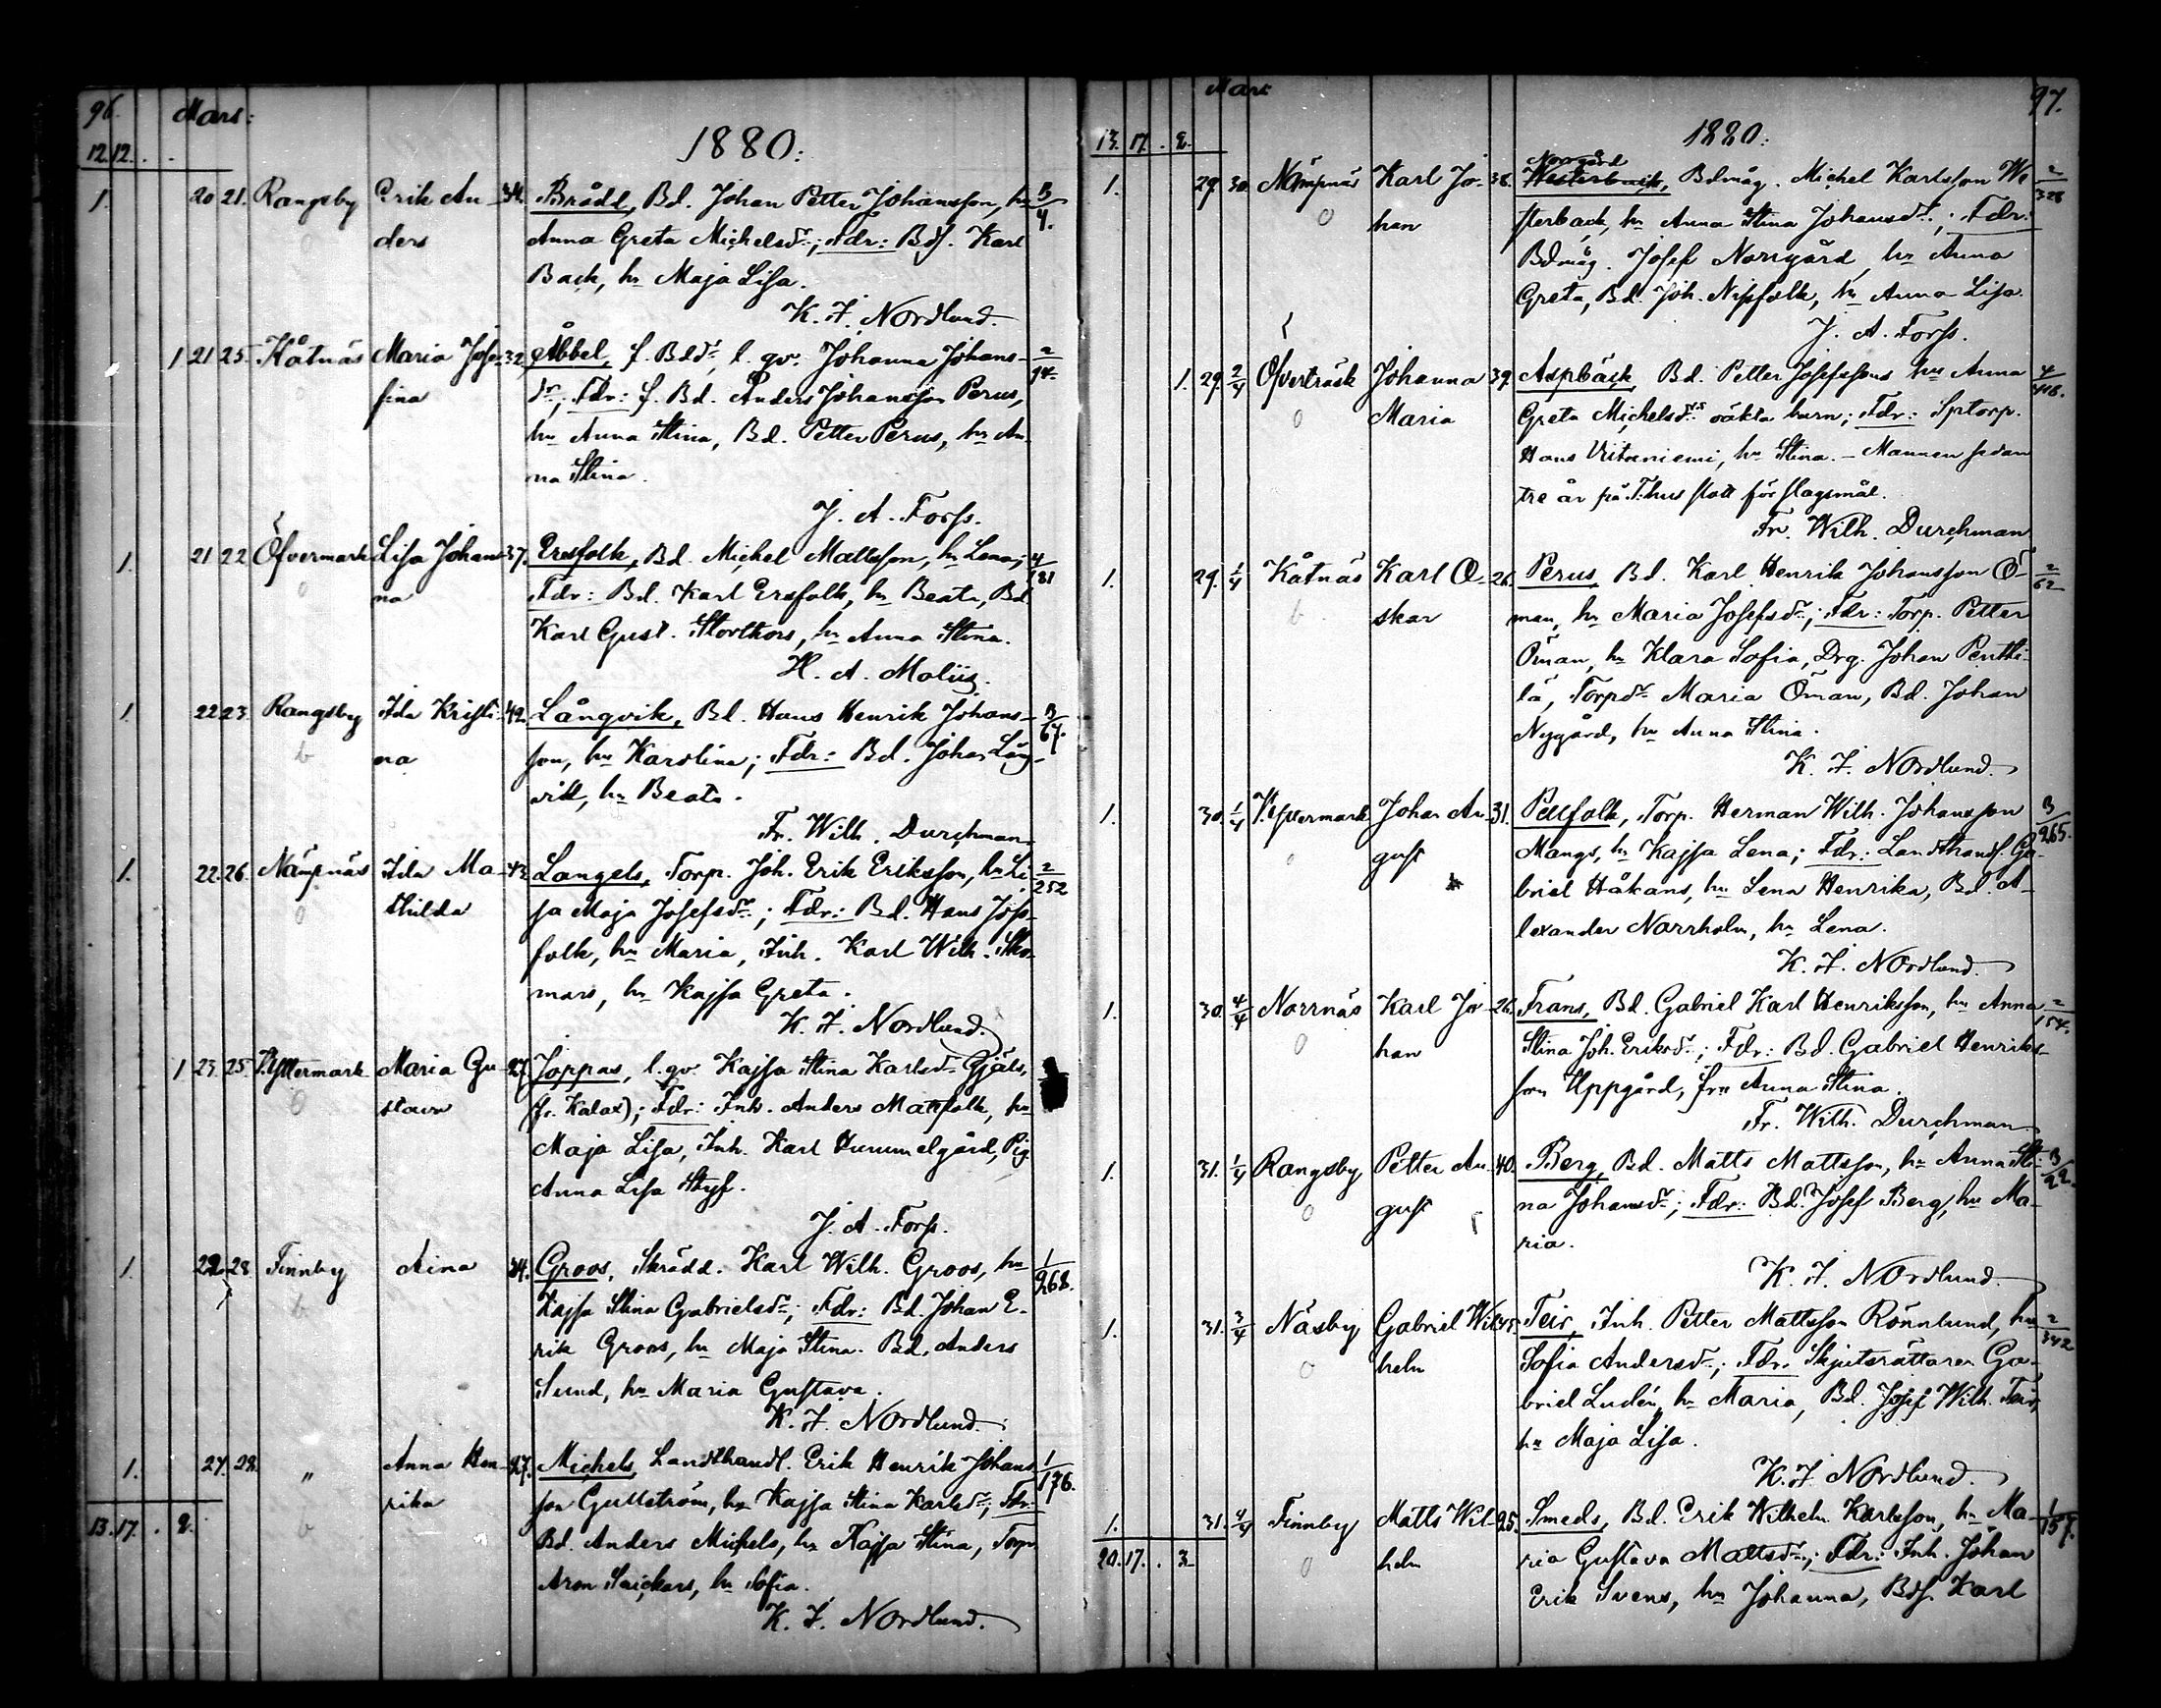 96. Mars:
12. 12. . .
1880:
1. 20 21. Rangsby Erik An- 34. Brådd, Bd. Johan Petter Johansson, hu 3/4.
ders Anna Greta Michelsdr; Fdr: Bds. Karl
Back, hu Maja Lisa.
K. F. Nordlund.
1 21 25. Kåtnäs Maria Jose- 32. Abbel, f. Bddr, l. qv. Johanna Johans- 2/94.
fina dr; Fdr: f. Bd. Anders Johansson Perus,
hu Anna Stina, Bd. Petter Perus, hu An-
na Stina.
J. A. Forss.
1. 21 22 Öfvermark Lisa Johan- 37. Ersfolk, Bd. Michel Mattsson, hu Lena; 4/181
na Fdr: Bd. Karl Ersfolk, hu Beata, Bd.
Karl Gust. Storthors, hu Anna Stina.
H. A. Moliis.
1. 22 23. Rangsby Ida Kristi- 42. Långvik, Bd. Hans Henrik Johans- 3/67.
na son, hu Karolina; Fdr: Bd. Johan Lång-
vik, hu Beata.
Fr. Wilh. Durchman
1. 22. 26. Nämpnäs Ida Ma- 43. Langels, Torp. Joh. Erik Eriksson, hu Li- 2/252
thilda sa Maja Josefsdr; Fdr: Bd. Hans Joss-
folk, hu Maria, Inh. Karl Wilh. Sko-
mars, hu Kajsa Greta.
K. F. Nordlund.
1 23. 25. Yttermark Maria Gu- 27. Joppas, l. qv. Kajsa Stina Karlsdr Gjäls,
stava (fr. Kalax); Fdr: Inh. Anders Mattfolk, hu
Maja Lisa, Inh. Karl Hummelgård, Pig.
Anna Lisa Styf.
J. A. Forss.
1. 22 28 Finnby Aina 24. Groos, Skrädd. Karl Wilh. Groos, hu 1/268.
Kajsa Stina Gabrielsdr; Fdr: Bd. Johan E-
rik Groos, hu Maja Stina. Bd. Anders
Sund, hu Maria Gustava.
K. F. Nordlund.
1. 27. 28. " Anna Hen- 27. Michels, Landthandl. Erik Henrik Johans- 1/176.
rika son Gullström, hu Kajsa Stina Karlsdr; Fdr:
Bd. Anders Michels, hu Kajsa Stina, Torp.
Aron Snickars, hu Sofia.
K. F. Nordlund.
13. 17. . 2.
Mars 97.
13. 17. . 2.
1880:
Norrgård
1. 29. 30. Nämpnäs Karl Jo- 38. Westerback, Bdmåg. Michel Karlsson We- 2/328
han sterback, hu Anna Stina Johansdr; Fdr:
Bdmåg. Josef Norrgård, hu Anna
Greta, Bd. Joh. Nissfolk, hu Anna Lisa.
J. A. Forss.
1. 29. 2/4 Öfverträsk Johanna 39. Aspback, Bd. Petter Josefssons hus Anna 4/418.
Maria Greta Michelsdrs oäkta barn; Fdr: Sptorp.
Hans Viitaniemi, hu Stina. – Mannen sedan
tre år på T.hus slott för slagsmål.
Fr. Wilh. Durchman
1. 29. 1/4 Kåtnäs Karl O- 26. Perus, Bd. Karl Henrik Johansson Ö- 2/62
skar man, hu Maria Josefsdr; Fdr: Torp. Petter
Öman, hu Klara Sofia, Drg. Johan Pentti-
lä, Torpdr Maria Öman, Bd. Johan
Nygård, hu Anna Stina.
K. F. Nordlund.
1. 30. 1/4 Yttermark Johan Au- 31. Pellfolk, Torp. Herman Wilh. Johansson 3/265.
gust Mangs, hu Kajsa Lena; Fdr: Landthandl. Ga-
briel Håkans, hu Lena Henrika, Bd. A-
lexander Norrholm, hu Lena.
K. F. Nordlund.
1. 30. 4/4 Norrnäs Karl Jo- 26. Frans, Bd. Gabriel Karl Henriksson, hu Anna 2/154.
han Stina Joh. Eriksdr; Fdr: Bd. Gabriel Henriks-
son Uppgård, fru Anna Stina.
Fr. Wilh. Durchman
1. 31. 1/4 Rangsby Petter Au- 40. Berg, Bd. Matts Mattsson, hu Anna Sti- 3/22.
gust na Johansdr; Fdr: Bd. Josef Berg, hu Ma-
ria.
K. F. Nordlund.
1. 31. 3/4 Näsby Gabriel Wil- 45. Teir, Inh. Petter Mattsson Rönnlund, hu 2/342
helm Sofia Andersdr; Fdr: Skjutsrättaren Ga-
briel Ludén, hu Maria, Bd. Josef Wilh. Teir,
hu Maja Lisa.
K. F. Nordlund.
1. 31. 4/4 Finnby Matts Wil- 25. Smeds, Bd. Erik Wilhelm Karlsson, hu Ma- 1/157.
helm ria Gustava Mattsdr; Fdr: Inh. Johan
Erik Svens, hu Johanna, Bds. Karl
20. 17. . 3.